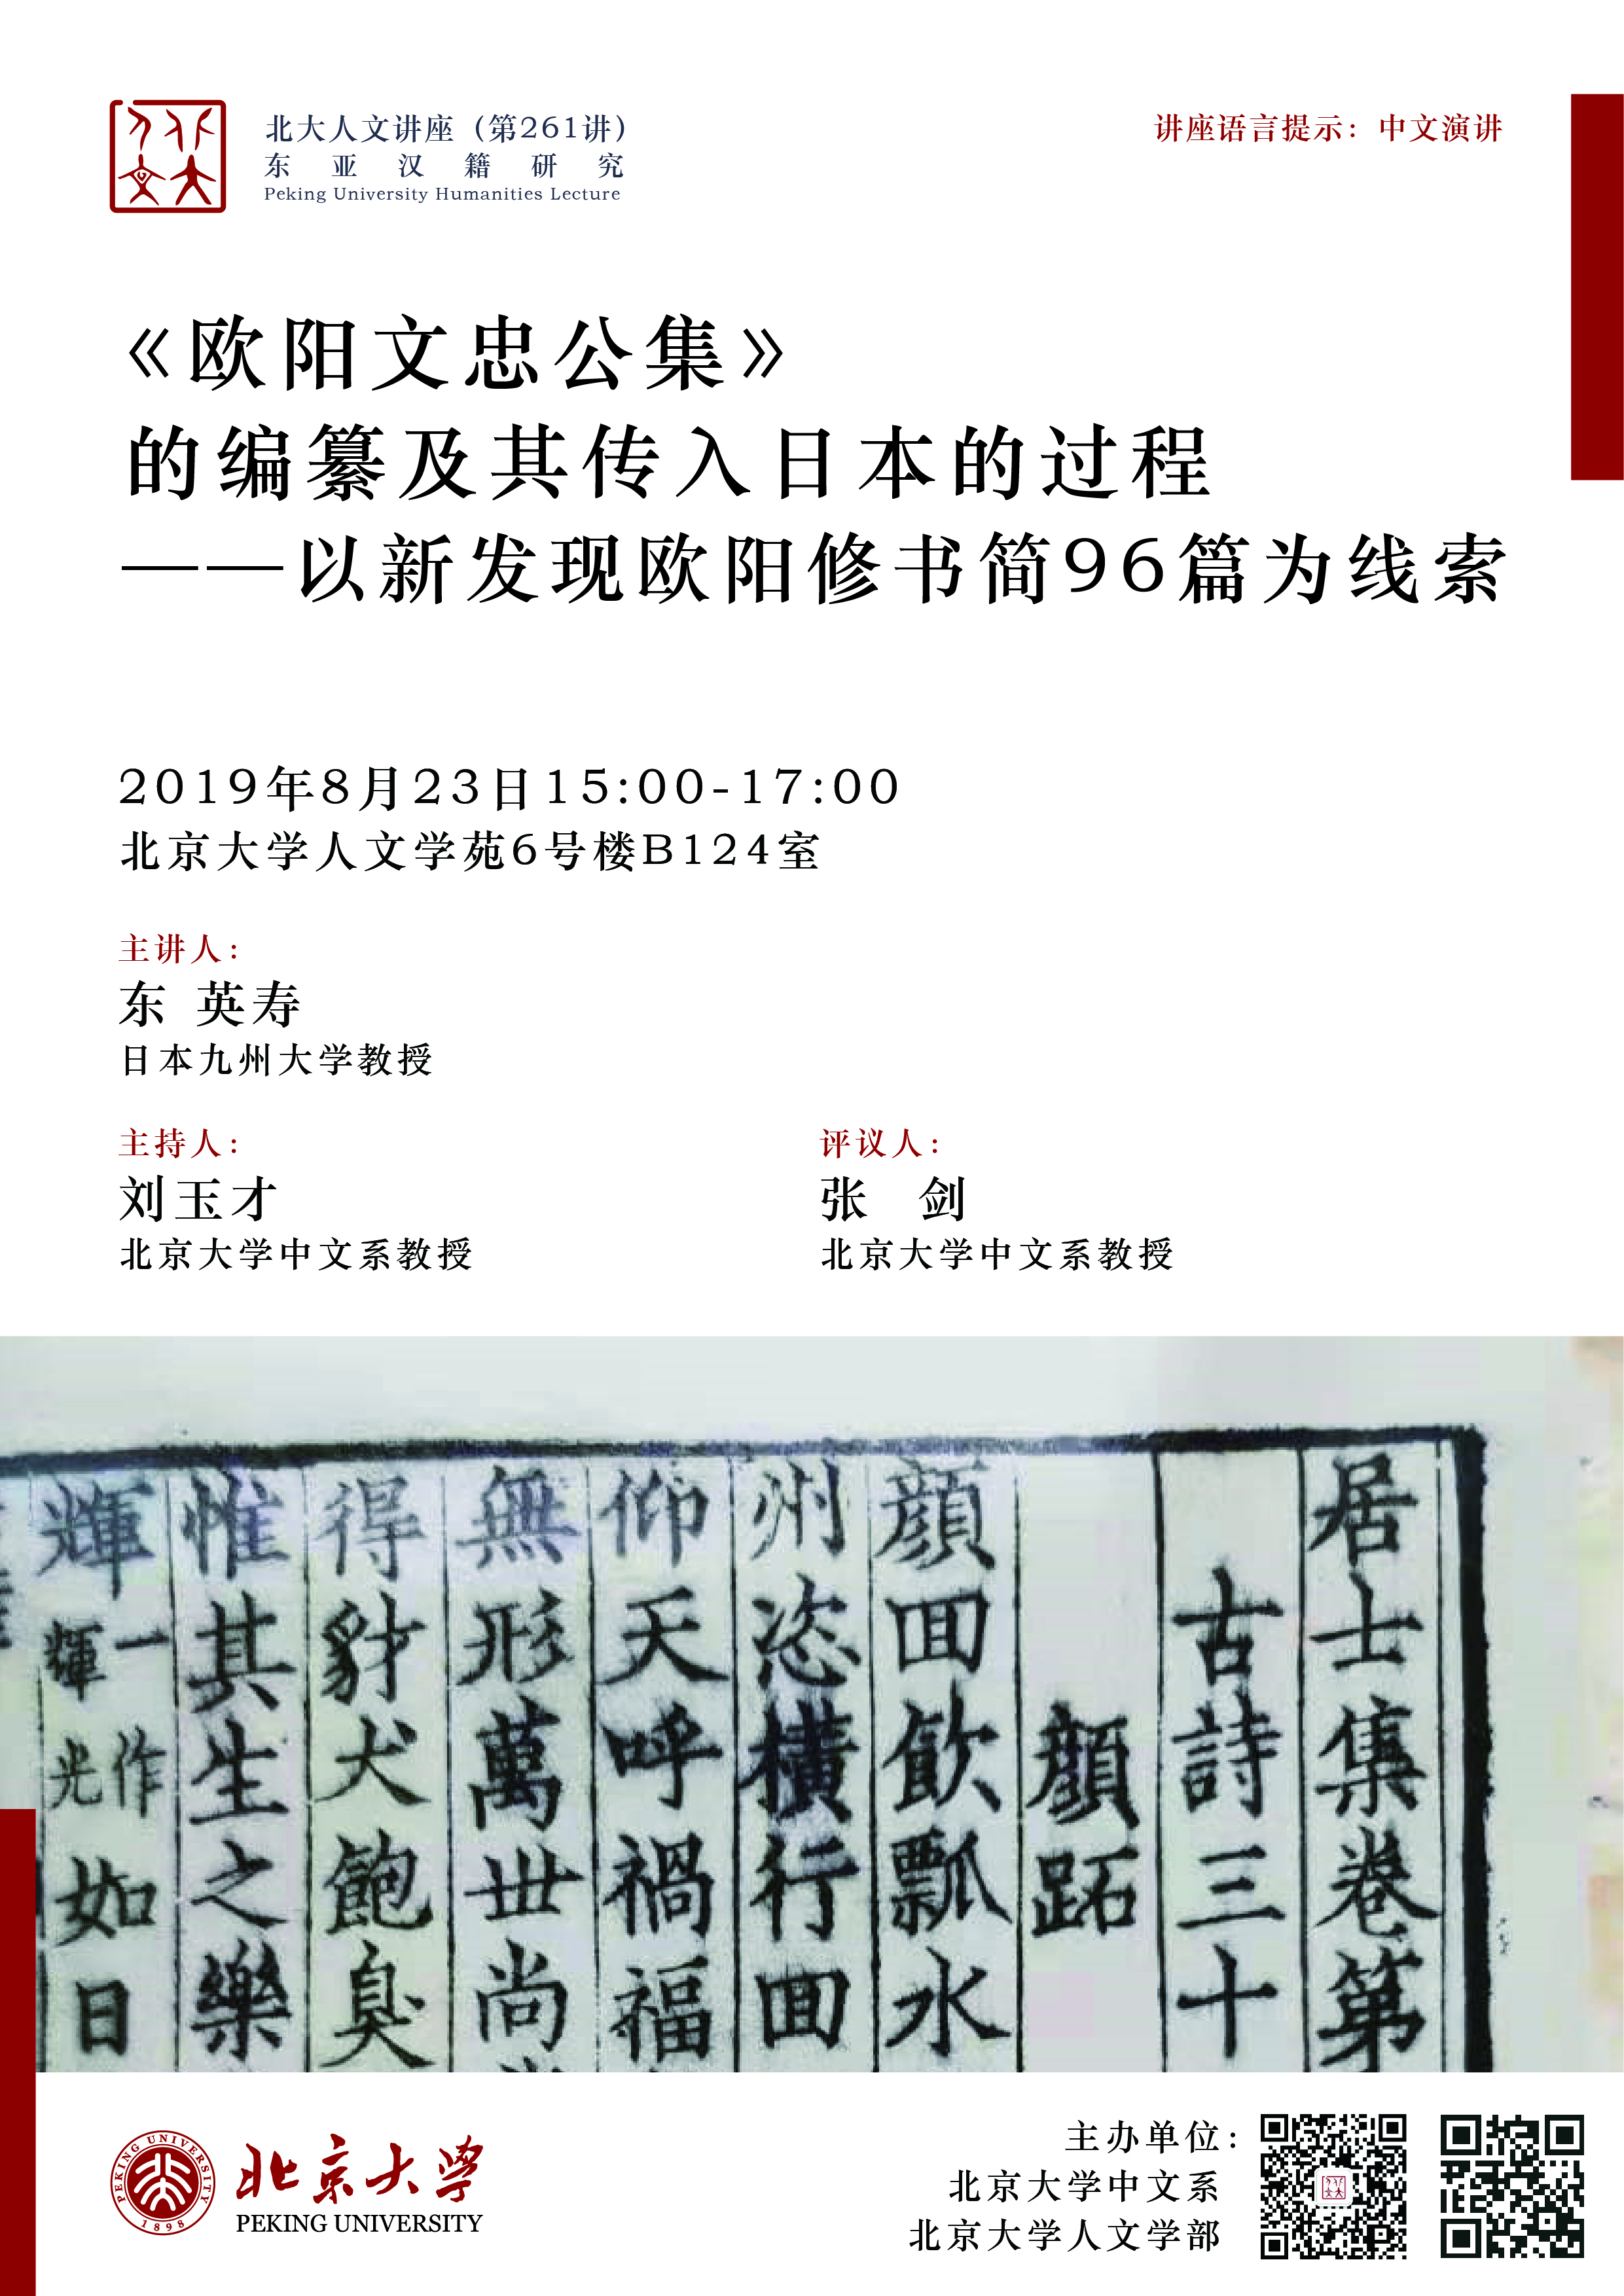 北大人文讲座（第261讲）
东亚汉籍研究
Peking University Humanities Lecture
讲座语言提示：中文演讲
《欧阳文忠公集》
的编纂及其传入日本的过程
——以新发现欧阳修书简96篇为线索
2019年8月23日15:00-17:00
北京大学人文学苑6号楼B124室
主讲人：
东 英寿
日本九州大学教授
主持人：
刘玉才
北京大学中文系教授
评议人：
张 剑
北京大学中文系教授
居士集卷第
古詩三十
顏跖
顏回飲瓢水
州恣橫行回
仰天呼禍福
無形萬世尚
得豺犬飽臭
惟其生之樂
輝一作輝光如日
PEKING UNIVERSITY
1898
北京大学
PEKING UNIVERSITY
主办单位：
北京大学中文系
北京大学人文学部